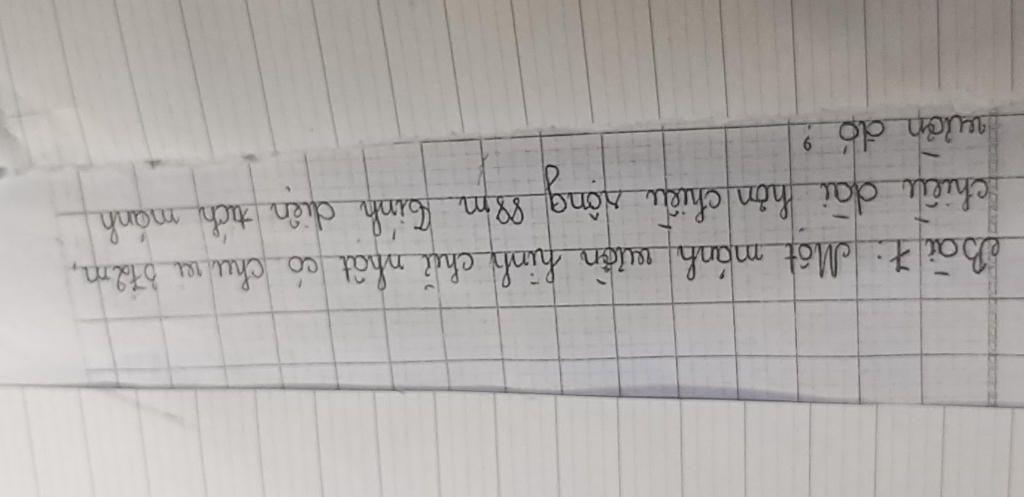 Bài 7: Một mảnh vườn hình chữ nhật có chu vi 372m,
chiều dài hơn chiều rộng 88m Tính diện tích mảnh
vườn đó?